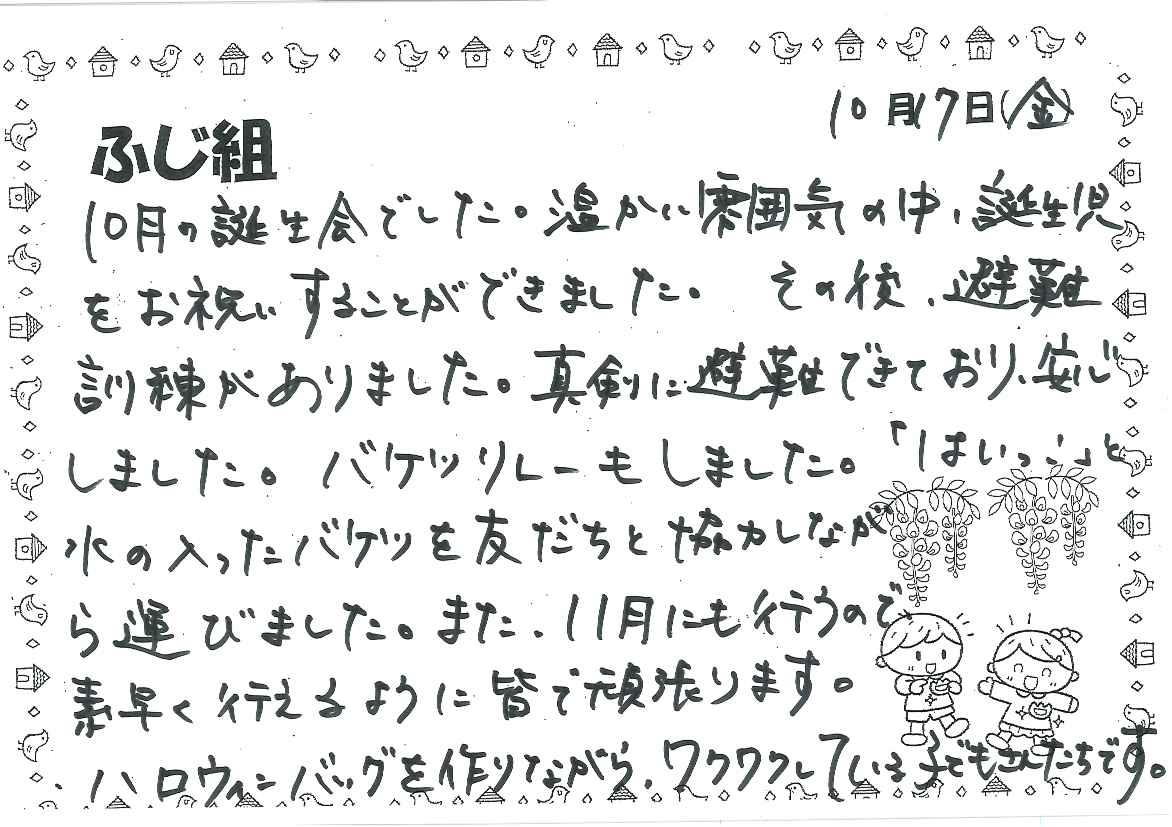 10月17日(金)
ふじ組
10月の誕生会でした。温かい雰囲気の中、誕生児
をお祝いすることができました。 その後、避難
訓練がありました。真剣に避難できており、安心
しました。バケツリレーもしました。「はいっ!」と
水の入ったバケツを友だちと協力しなが
ら運びました。また、11月にも行うので
素早く行えるように皆で頑張ります。
ハロウィンバッグを作りながら、ワクワクしている子どもさんたちです。